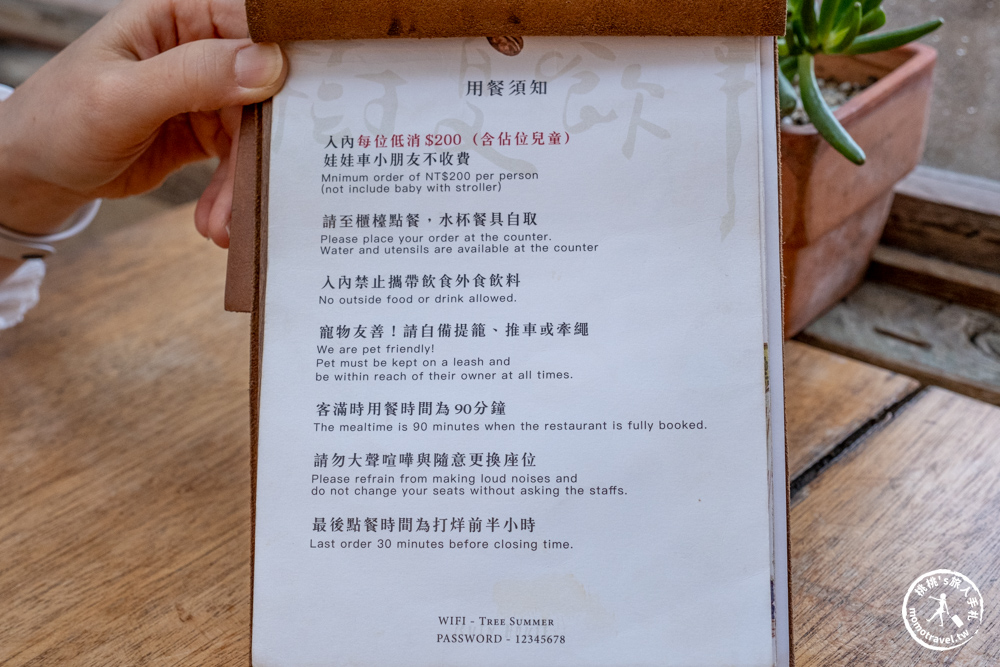 用餐須知
入內每位低消 $200（含佔位兒童）
娃娃車小朋友不收費
Mnimum order of NT$200 per person
(not include baby with stroller)
請至櫃檯點餐，水杯餐具自取
Please place your order at the counter.
Water and utensils are available at the counter
入內禁止攜帶飲食外食飲料
No outside food or drink allowed.
寵物友善！請自備提籠、推車或牽繩
We are pet friendly!
Pet must be kept on a leash and
be within reach of their owner at all times.
客滿時用餐時間為 90分鐘
The mealtime is 90 minutes when the restaurant is fully booked.
請勿大聲喧嘩與隨意更換座位
Please refrain from making loud noises and
do not change your seats without asking the staffs.
最後點餐時間為打烊前半小時
Last order 30 minutes before closing time.
WIFI - TREE SUMMER
PASSWORD - 12345678
桃桃's旅人手札
momotravel.tw